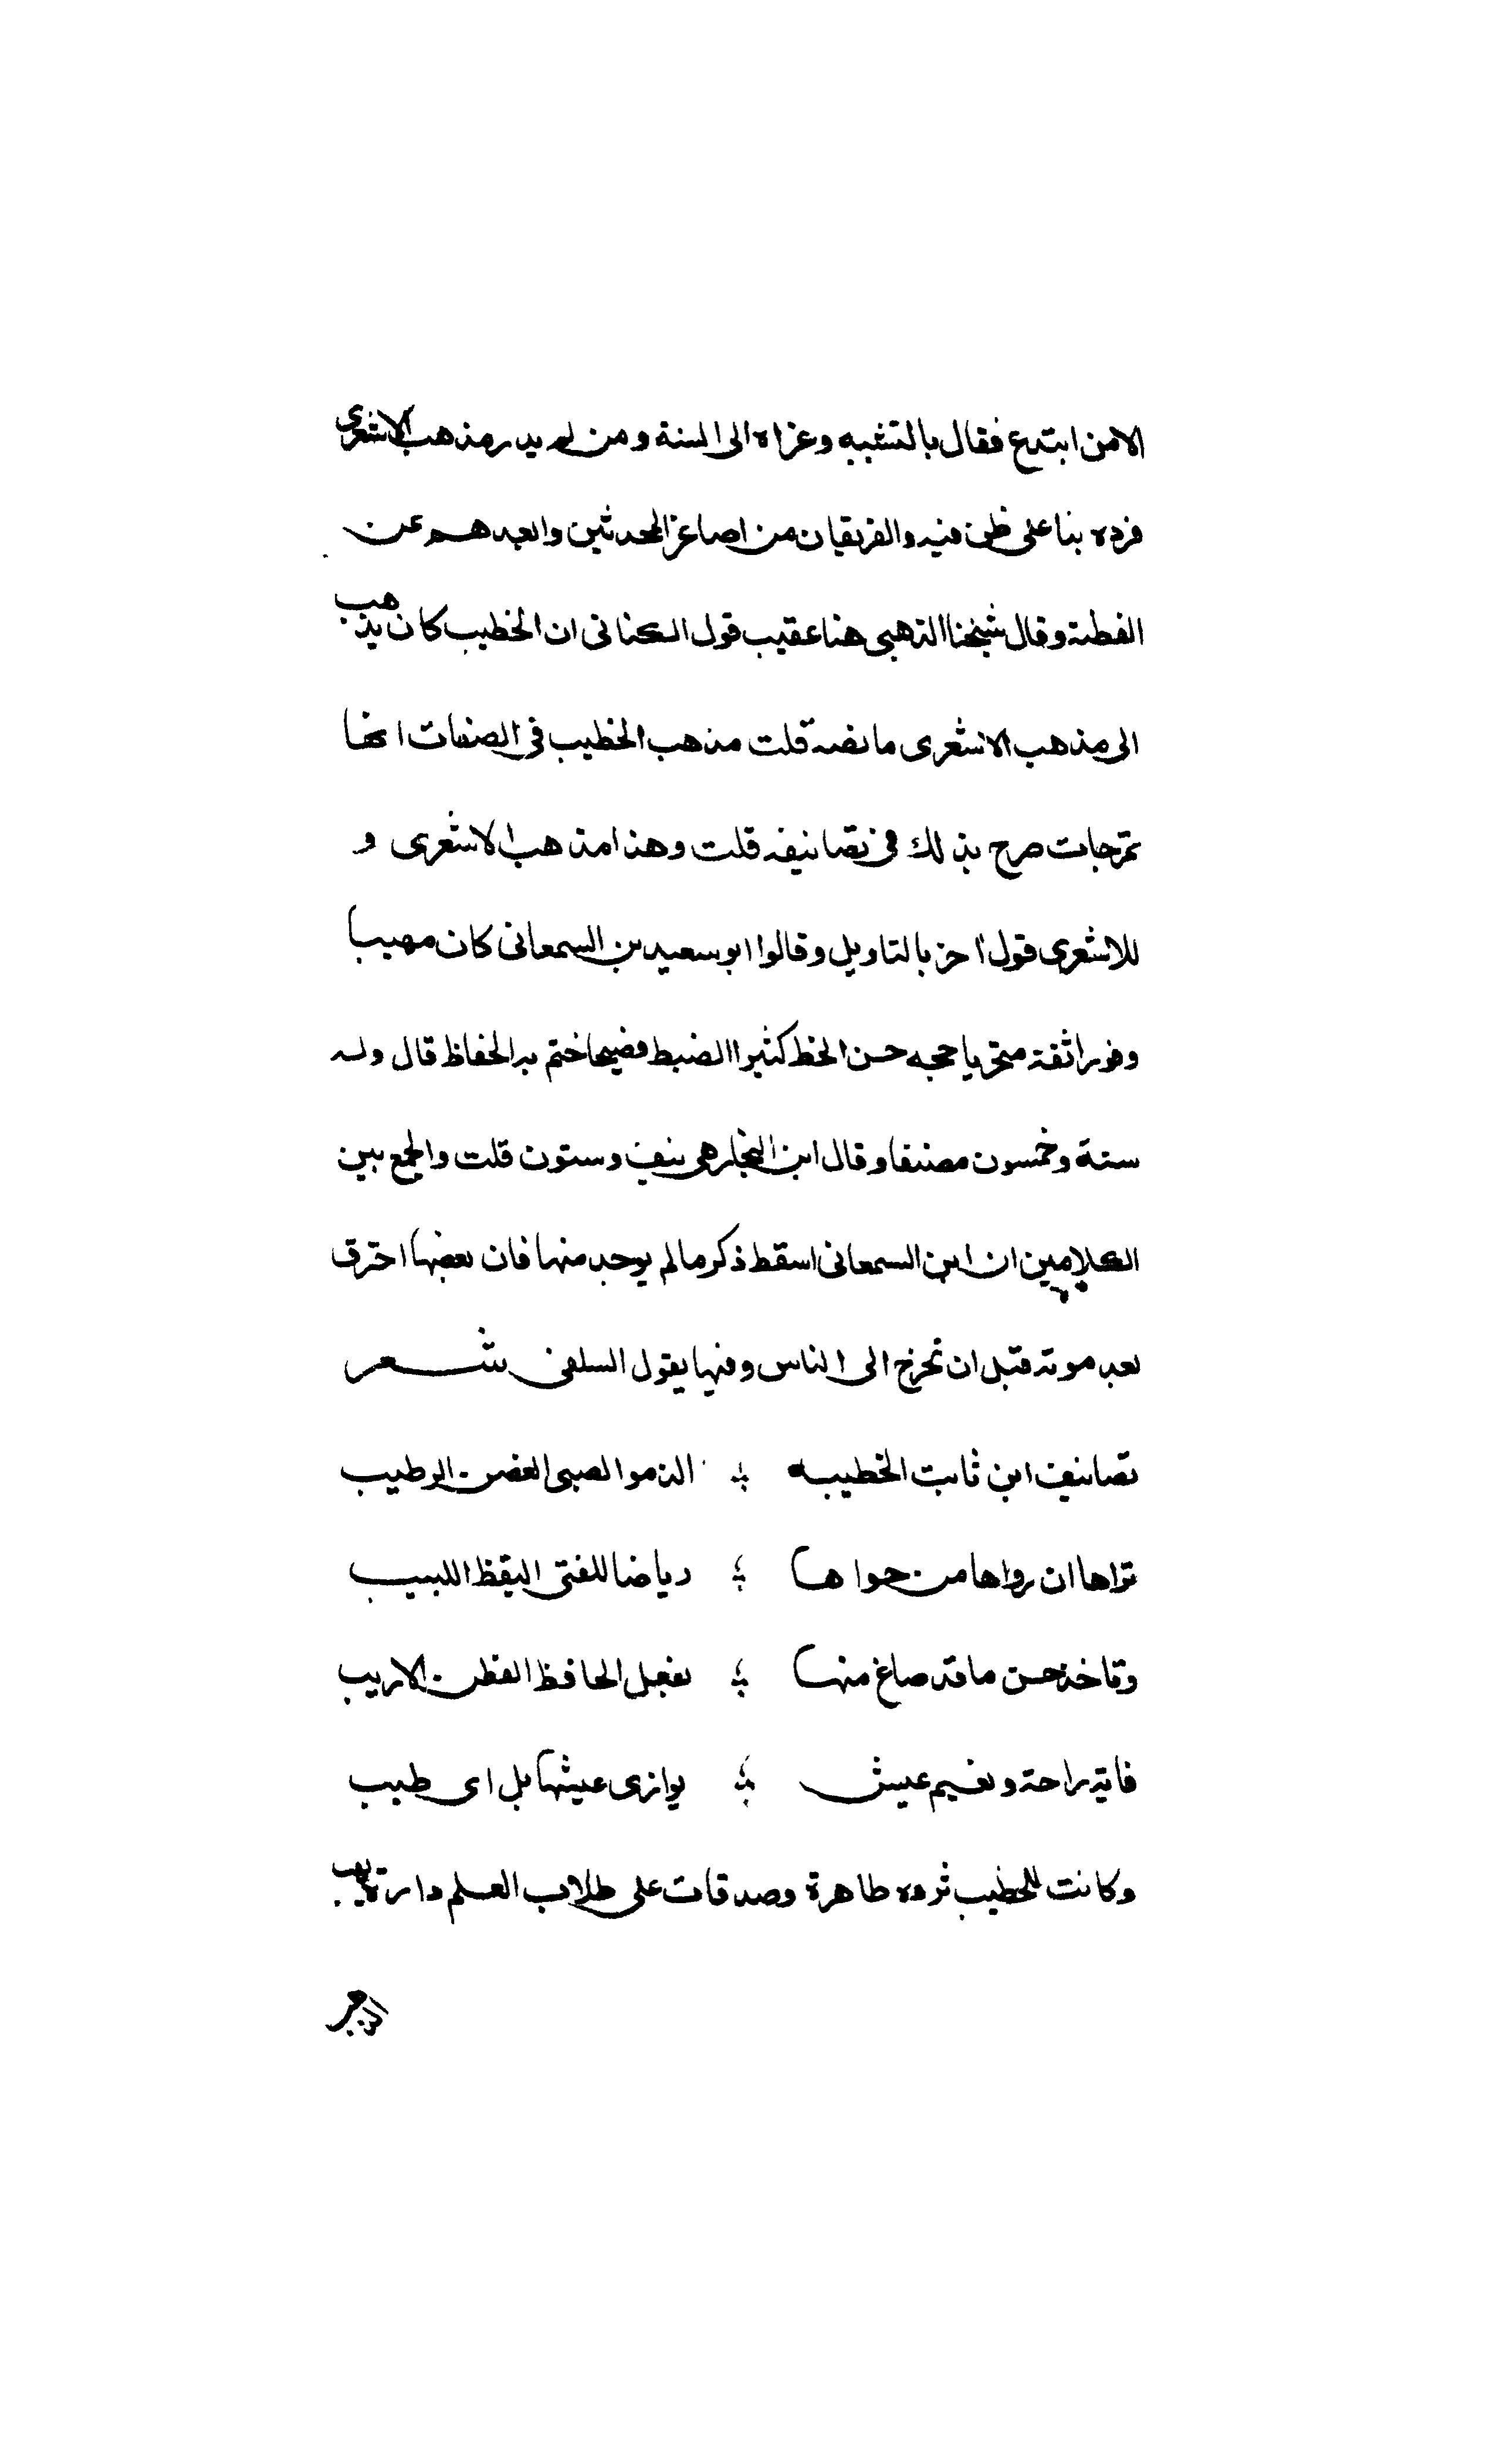 الا من ابتدع فقال بالتشبيه وعزاه الى السنة ومن لم يدر مذهب الاشعرى
فرده بنا على ظن فيه والفريقان من اصاغر المحدثين وابعدهم عن
الفطنة وقال شيخنا الذهبى هنا عقيب قول الكنانى ان الخطيب كان يذهب
الى مذهب الاشعرى ما نصه قلت مذهب الخطيب فى الصفات انها
تمر كما جات صرح بذلك فى تصانيفه قلت وهذا مذهب الاشعرى و
للاشعرى قول اخر بالتاويل وقالوا ابو سعيد بن السمعانى كان مهيبا
وقورا ثقة متحريا حجه حسن الخط كثيرا الضبط فصيحا ختم به الحفاظ قال وله
ستة وخمسون مصنفا وقال ابن النجار هى نيف وستون قلت والجمع بين
الكلامين ان ابن السمعانى اسقط ذكر ما لم يوجد منها فان بعضها احترق
بعد موته قبل ان تخرج الى الناس وفيها يقول السلفى شعر
تصانيف ابن ثابت الخطيب الذ من الصبى الغض الرطيب
تراها ان رواها من حواها رياضا للفتى اليقظ اللبيب
وتاخذ حسن ما قد صاغ منها بعقل الحافظ الفطن الاريب
فاية راحة ونعيم عيش يوازى عيشها بل اى طيب
وكانت للخطيب ثروه ظاهرة وصدقات على طلاب العلم دارة يهب
الذهب